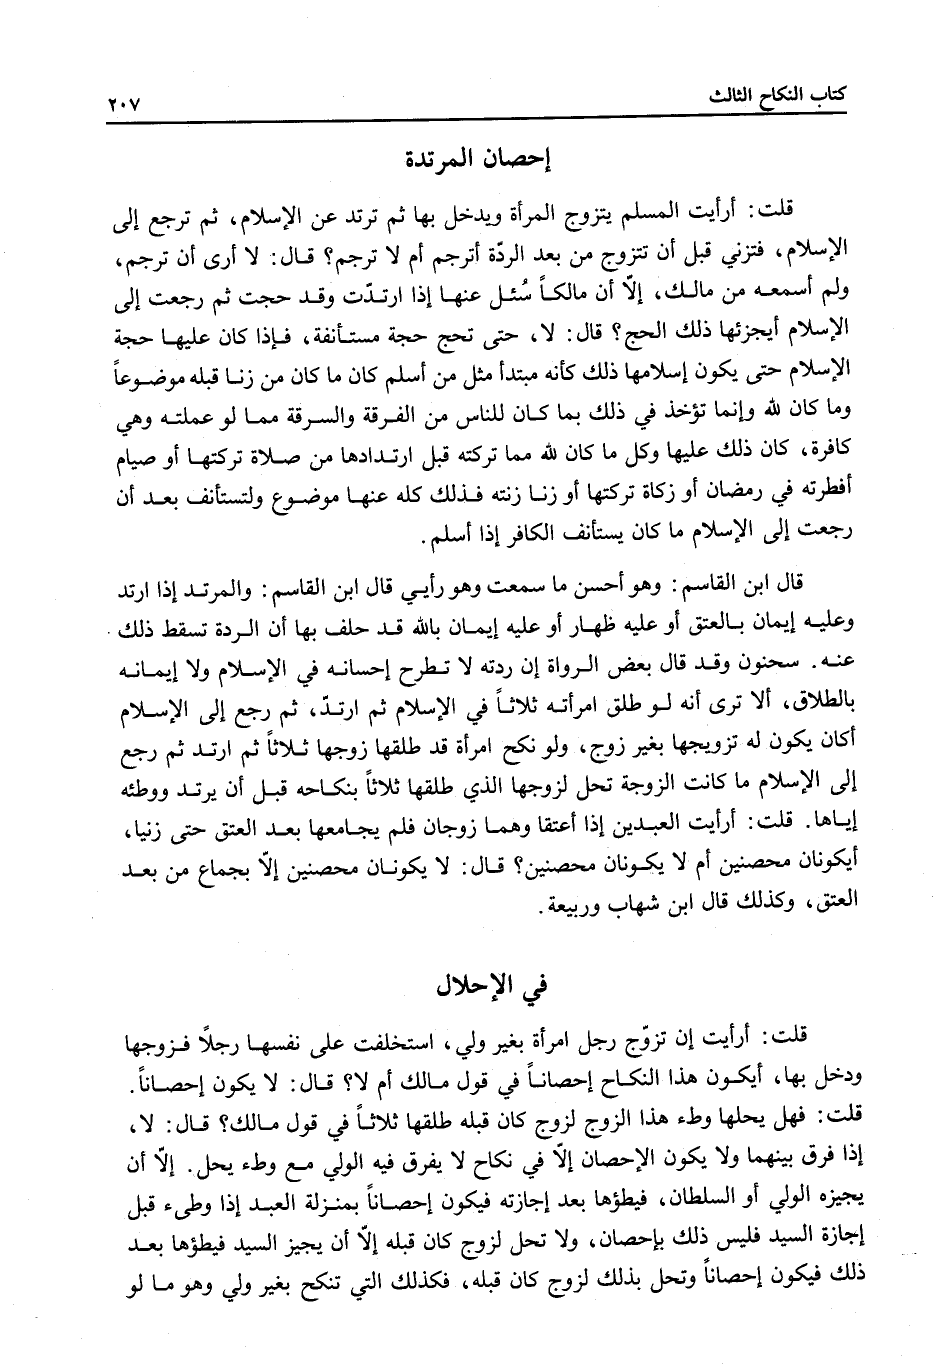 كتاب النكاح الثالث ٢٠٧
إحصان المرتدة
قلت: أرأيت المسلم يتزوج المرأة ويدخل بها ثم ترتد عن الإسلام، ثم ترجع إلى
الإسلام، فتزني قبل أن تتزوج من بعد الردّة أترجم أم لا ترجم؟ قال: لا أرى أن ترجم،
ولم أسمعه من مالك، إلّا أن مالكاً سُئل عنها إذا ارتدّت وقد حجت ثم رجعت إلى
الإسلام أيجزئها ذلك الحج؟ قال: لا، حتى تحج حجة مستأنفة، فإذا كان عليها حجة
الإسلام حتى يكون إسلامها ذلك كأنه مبتدأ مثل من أسلم كان ما كان من زنا قبله موضوعاً
وما كان لله وإنما تؤخذ في ذلك بما كان للناس من الفرقة والسرقة مما لو عملته وهي
كافرة، كان ذلك عليها وكل ما كان لله مما تركته قبل ارتدادها من صلاة تركتها أو صيام
أفطرته في رمضان أو زكاة تركتها أو زنا زنته فذلك كله عنها موضوع ولتستأنف بعد أن
رجعت إلى الإسلام ما كان يستأنف الكافر إذا أسلم.
قال ابن القاسم: وهو أحسن ما سمعت وهو رأيي قال ابن القاسم: والمرتد إذا ارتد
وعليه إيمان بالعتق أو عليه ظهار أو عليه إيمان بالله قد حلف بها أن الردة تسقط ذلك
عنه. سحنون وقد قال بعض الرواة إن ردته لا تطرح إحسانه في الإسلام ولا إيمانه
بالطلاق، ألا ترى أنه لو طلق امرأته ثلاثاً في الإسلام ثم ارتدّ، ثم رجع إلى الإسلام
أكان يكون له تزويجها بغير زوج، ولو نكح امرأة قد طلقها زوجها ثلاثاً ثم ارتد ثم رجع
إلى الإسلام ما كانت الزوجة تحل لزوجها الذي طلقها ثلاثاً بنكاحه قبل أن يرتد ووطئه
إياها. قلت: أرأيت العبدين إذا أعتقا وهما زوجان فلم يجامعها بعد العتق حتى زنيا،
أيكونان محصنين أم لا يكونان محصنين؟ قال: لا يكونان محصنين إلّا بجماع من بعد
العتق، وكذلك قال ابن شهاب وربيعة.
في الإحلال
قلت: أرأيت إن تزوّج رجل امرأة بغير ولي، استخلفت على نفسها رجلاً فزوجها
ودخل بها، أيكون هذا النكاح إحصاناً في قول مالك أم لا؟ قال: لا يكون إحصاناً.
قلت: فهل يحلها وطء هذا الزوج لزوج كان قبله طلقها ثلاثاً في قول مالك؟ قال: لا،
إذا فرق بينهما ولا يكون الإحصان إلّا في نكاح لا يفرق فيه الولي مع وطء يحل. إلّا أن
يجيزه الولي أو السلطان، فيطؤها بعد إجازته فيكون إحصاناً بمنزلة العبد إذا وطىء قبل
إجازة السيد فليس ذلك بإحصان، ولا تحل لزوج كان قبله إلّا أن يجيز السيد فيطؤها بعد
ذلك فيكون إحصاناً وتحل بذلك لزوج كان قبله، فكذلك التي تنكح بغير ولي وهو ما لو